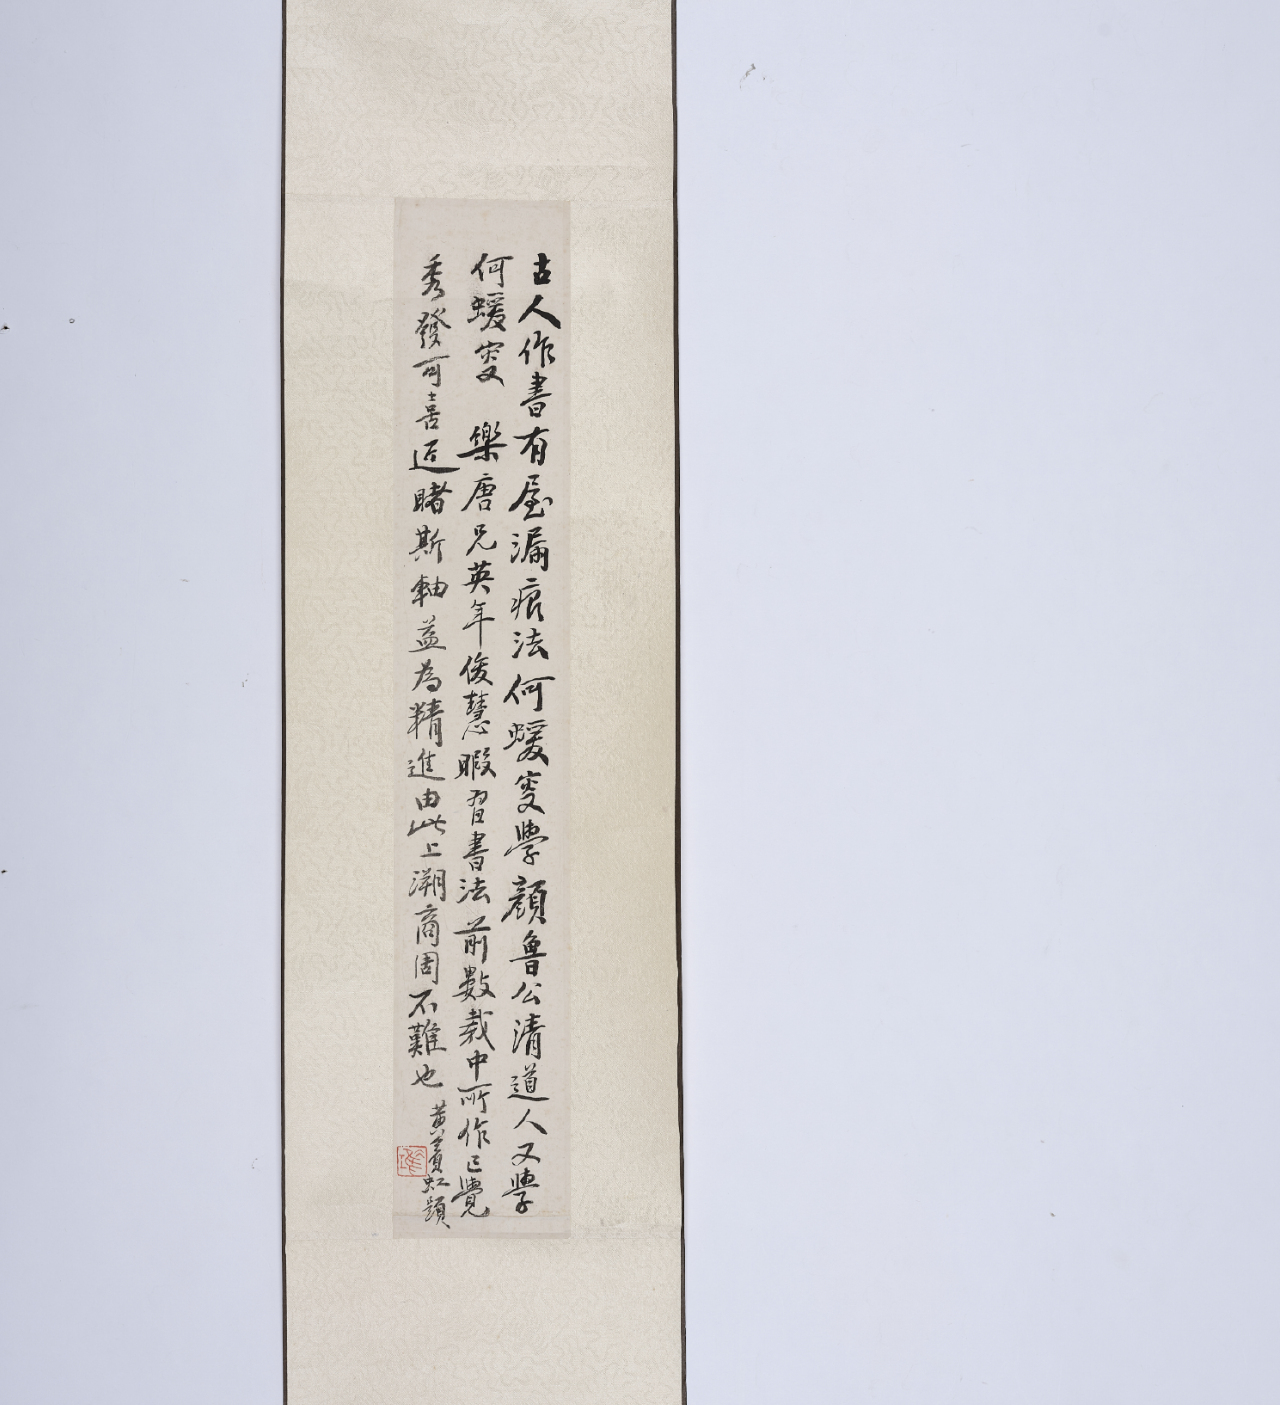 古人作書有屋漏痕法何蝯叟學顏魯公清道人又學
何蝯叟 樂唐兄英年俊慧暇習書法前數載中所作已覺
秀發可喜近睹斯軸益為精進由此上溯商周不難也
黃賓虹題